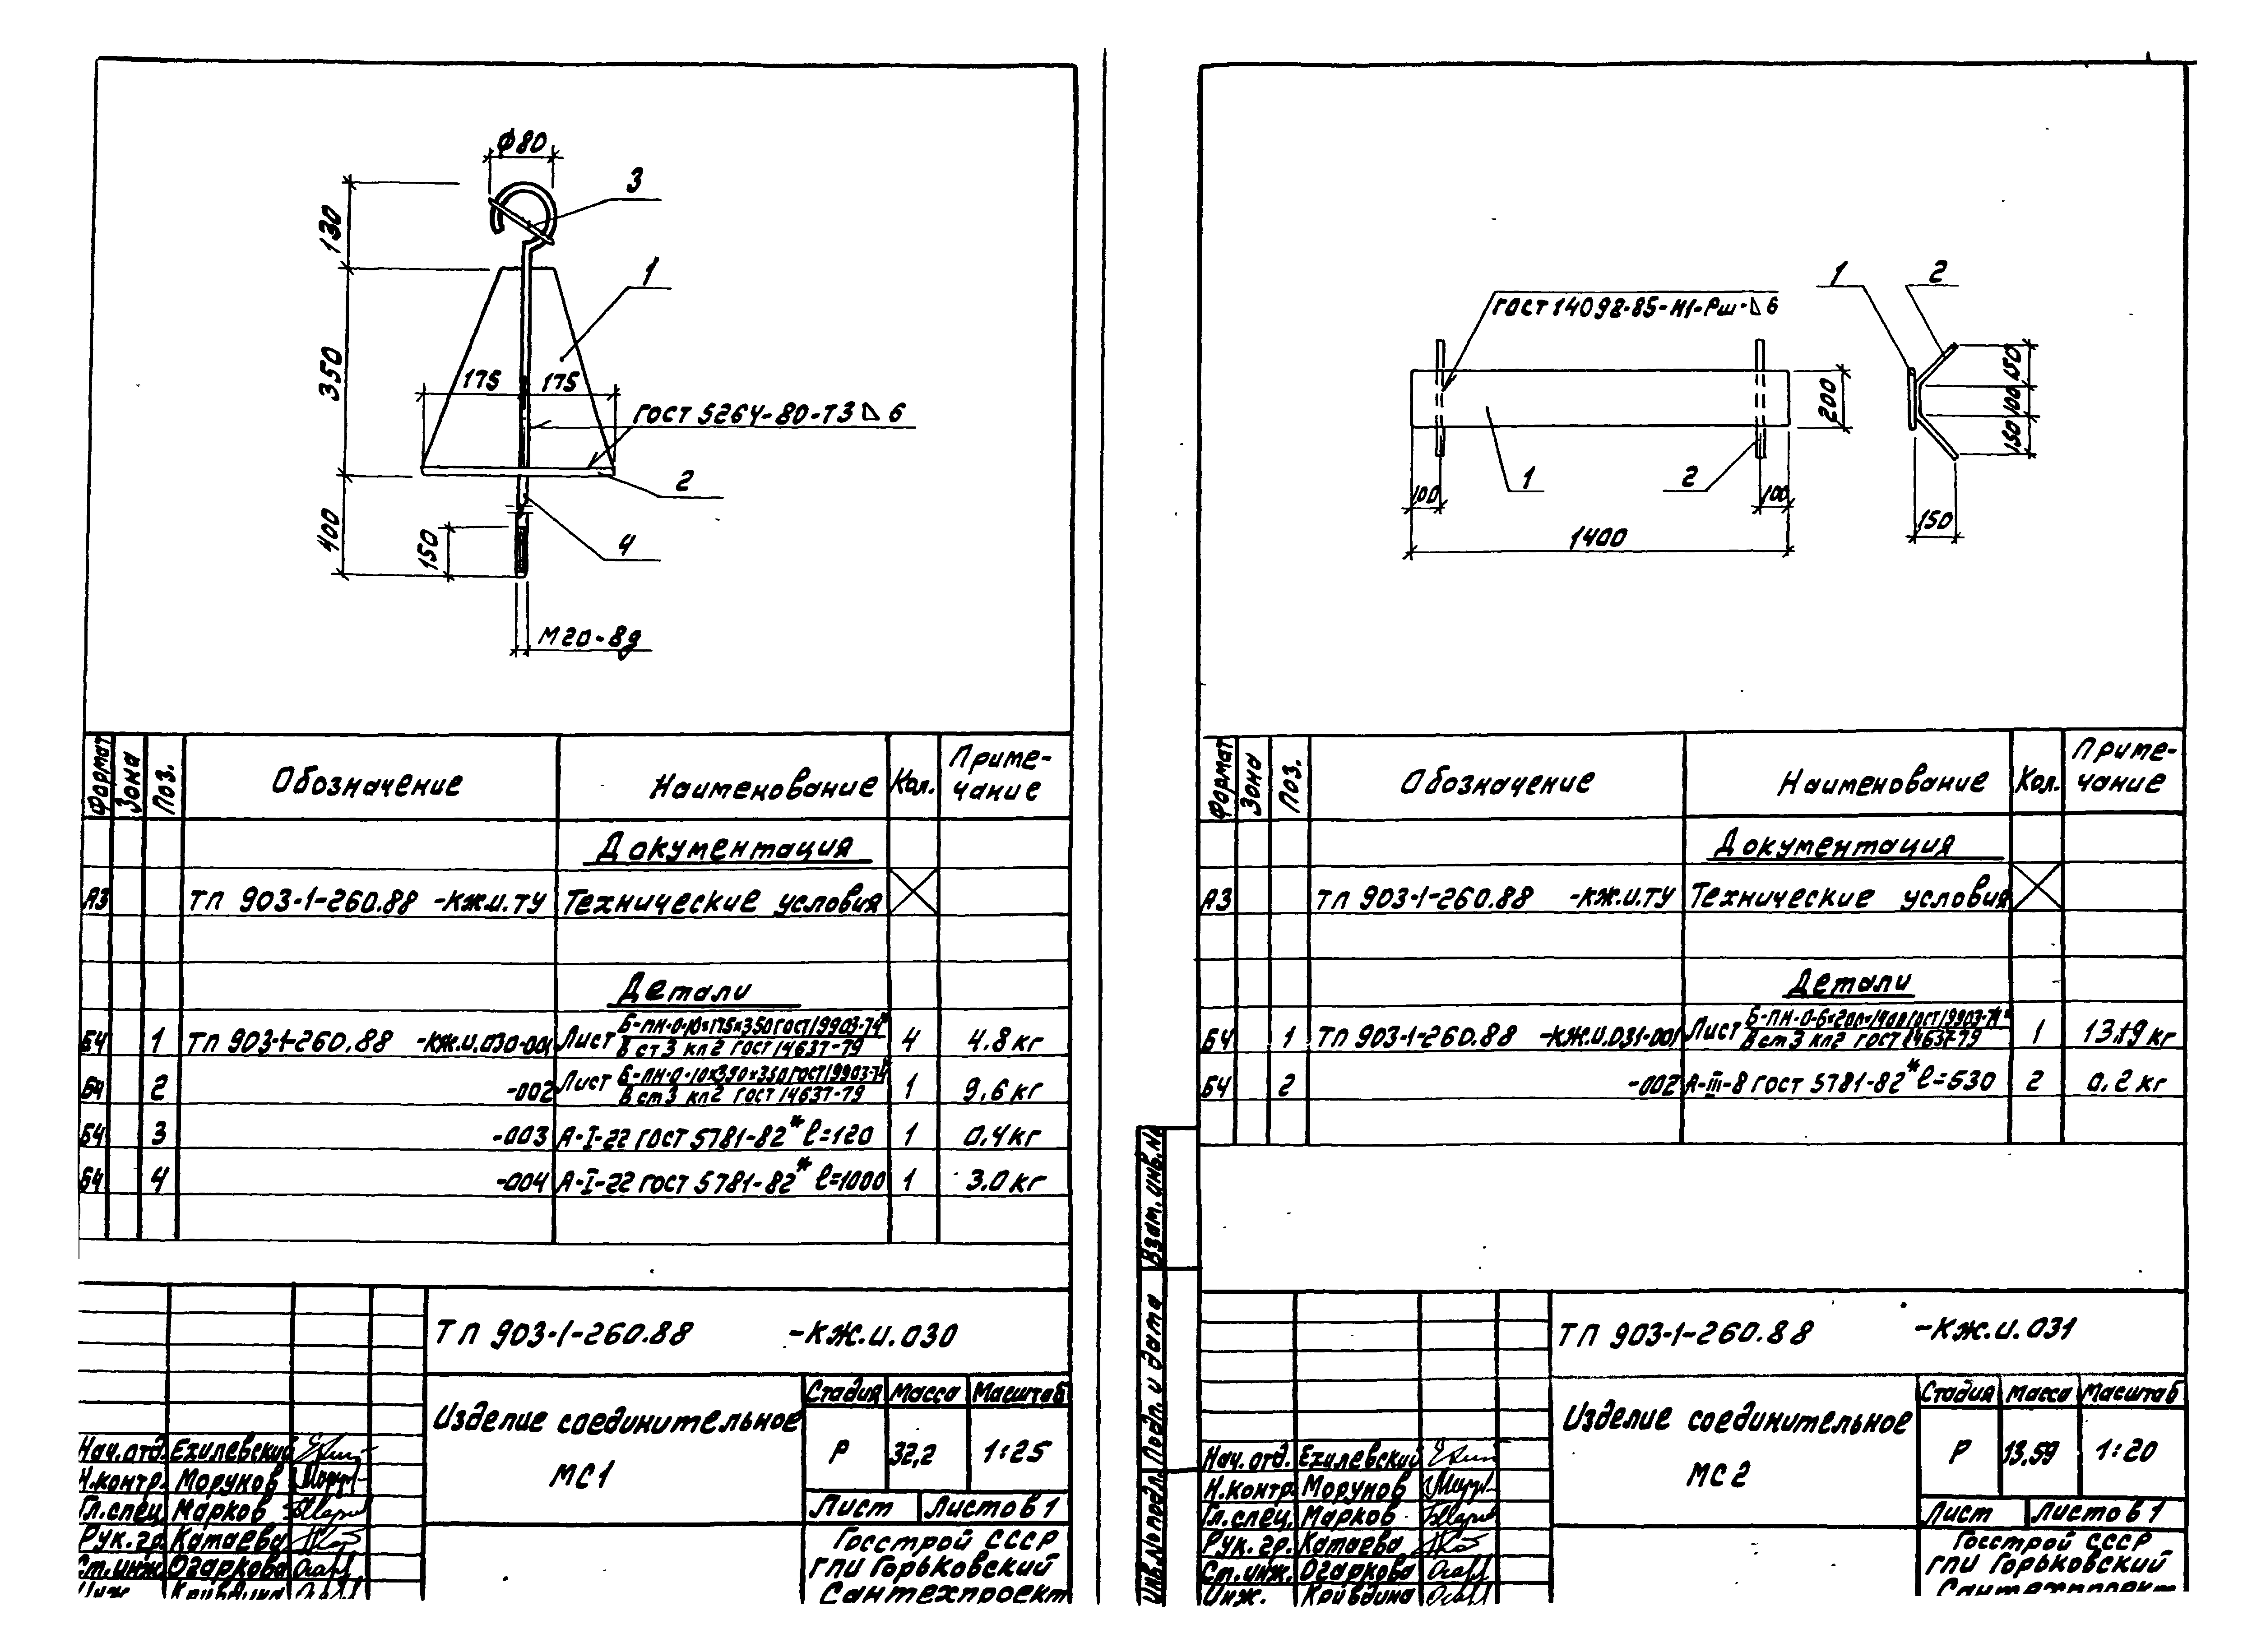 Ф80
3
130
1
350
175 175
ГОСТ 5264-80-Т3 ⊿ 6
2
400
150
4
М20-8g
Формат Зона Поз. Обозначение Наименование Кол. Приме-
чание
Документация
А3 ТП 903-1-260.88 -КЖ.И.ТУ Технические условия
Детали
БЧ 1 ТП 903-1-260.88 -КЖ.И.030-001 Лист Б-ПН-О-10×175×350 ГОСТ 19903-74* 4 4.8 кг
В ст 3 кп 2 ГОСТ 14637-79
БЧ 2 -002 Лист Б-ПН-О-10×350×350 ГОСТ 19903-74* 1 9,6 кг
В ст 3 кп 2 ГОСТ 14637-79
БЧ 3 -003 А-I-22 ГОСТ 5781-82* ℓ=120 1 0,4 кг
БЧ 4 -004 А-I-22 ГОСТ 5781-82* ℓ=1000 1 3.0 кг
ТП 903-1-260.88 -КЖ.И.030
Изделие соединительное
МС1
Стадия Масса Масштаб
Р 32,2 1:25
Лист Листов 1
Нач.отд. Ехилевский
Н.контр. Морунов
Гл.спец. Марков
Рук.гр. Катаева
Ст.инж. Огаркова
Инж. Кривдина
Госстрой СССР
ГПИ Горьковский
Сантехпроект
1 2
ГОСТ 14098-85-Н1-Рш-⊿ 6
200
150
100
150
1 2
100 100
150
1400
Формат Зона Поз. Обозначение Наименование Кол. Приме-
чание
Документация
А3 ТП 903-1-260.88 -КЖ.И.ТУ Технические условия
Детали
БЧ 1 ТП 903-1-260.88 -КЖ.И.031-001 Лист Б-ПН-О-6×200×1400 ГОСТ 19903-74* 1 кг
В ст 3 кп 2 ГОСТ 14637-79
БЧ 2 -002 А-III-8 ГОСТ 5781-82* ℓ=530 2 0,2 кг
Взам.инв.№
Подп. и дата
Инв.№ подл.
ТП 903-1-260.88 -КЖ.И.031
Изделие соединительное
МС2
Стадия Масса Масштаб
Р 13,59 1:20
Лист Листов 1
Нач.отд. Ехилевский
Н.контр. Морунов
Гл.спец. Марков
Рук.гр. Катаева
Ст.инж. Огаркова
Инж. Кривдина
Госстрой СССР
ГПИ Горьковский
Сантехпроект